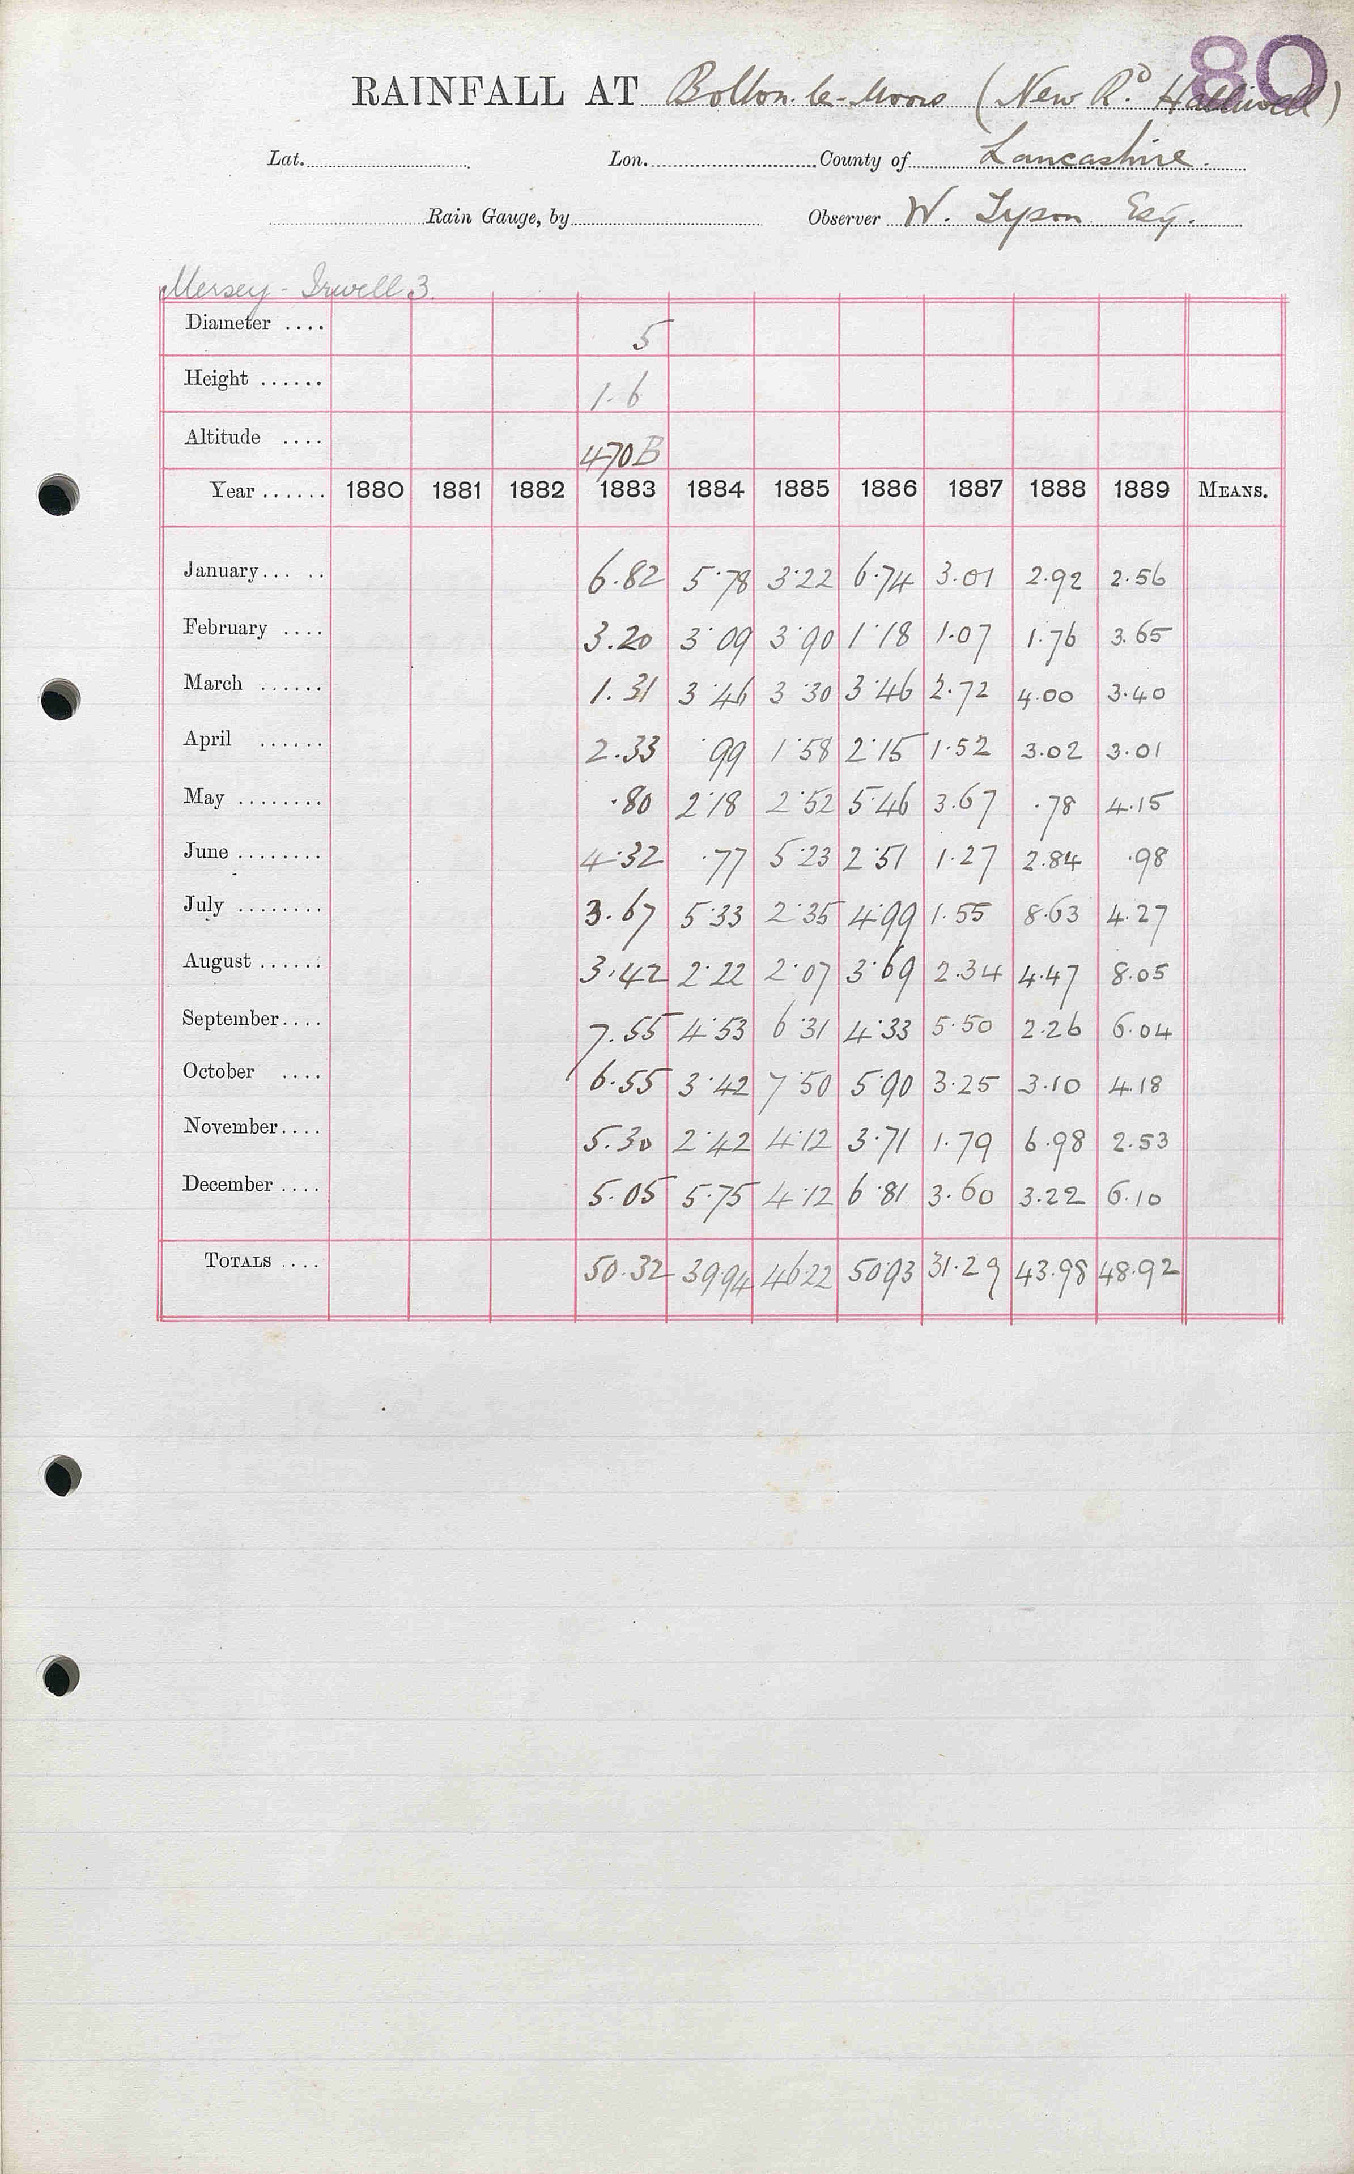 80
RAINFALL AT Bolton-le-Moors (New Rd. Halliwell)
Lat. Lon. County of Lancashire.
Rain Gauge, by Observer W. Tyson Esq.
Mersey - Irwell 3.
Diameter .... 5
Height ...... 1.6
Altitude .... 470B
Year ...... 1880 1881 1882 1883 1884 1885 1886 1887 1888 1889 MEANS.
January... .. 6.82 5.78 3.22 6.74 3.01 2.92 2.56
February .... 3.20 3.09 3.90 1.18 1.07 1.76 3.65
March ...... 1.31 3.46 3.30 3.46 2.72 4.00 3.40
April ...... 2.33 .99 1.58 2.15 1.52 3.02 3.01
May ........ .80 2.18 2.52 5.46 3.67 .78 4.15
June ........ 4.32 .77 5.23 2.51 1.27 2.84 .98
July ........ 3.67 5.33 2.35 4.99 1.55 8.63 4.27
August ...... 3.42 2.22 2.07 3.69 2.34 4.47 8.05
September.... 7.55 4.53 6.31 4.33 5.50 2.26 6.04
October .... 6.55 3.42 7.50 5.90 3.25 3.10 4.18
November.... 5.30 2.42 4.12 3.71 1.79 6.98 2.53
December .... 5.05 5.75 4.12 6.81 3.60 3.22 6.10
TOTALS .... 50.32 39.94 46.22 50.93 31.29 43.98 48.92